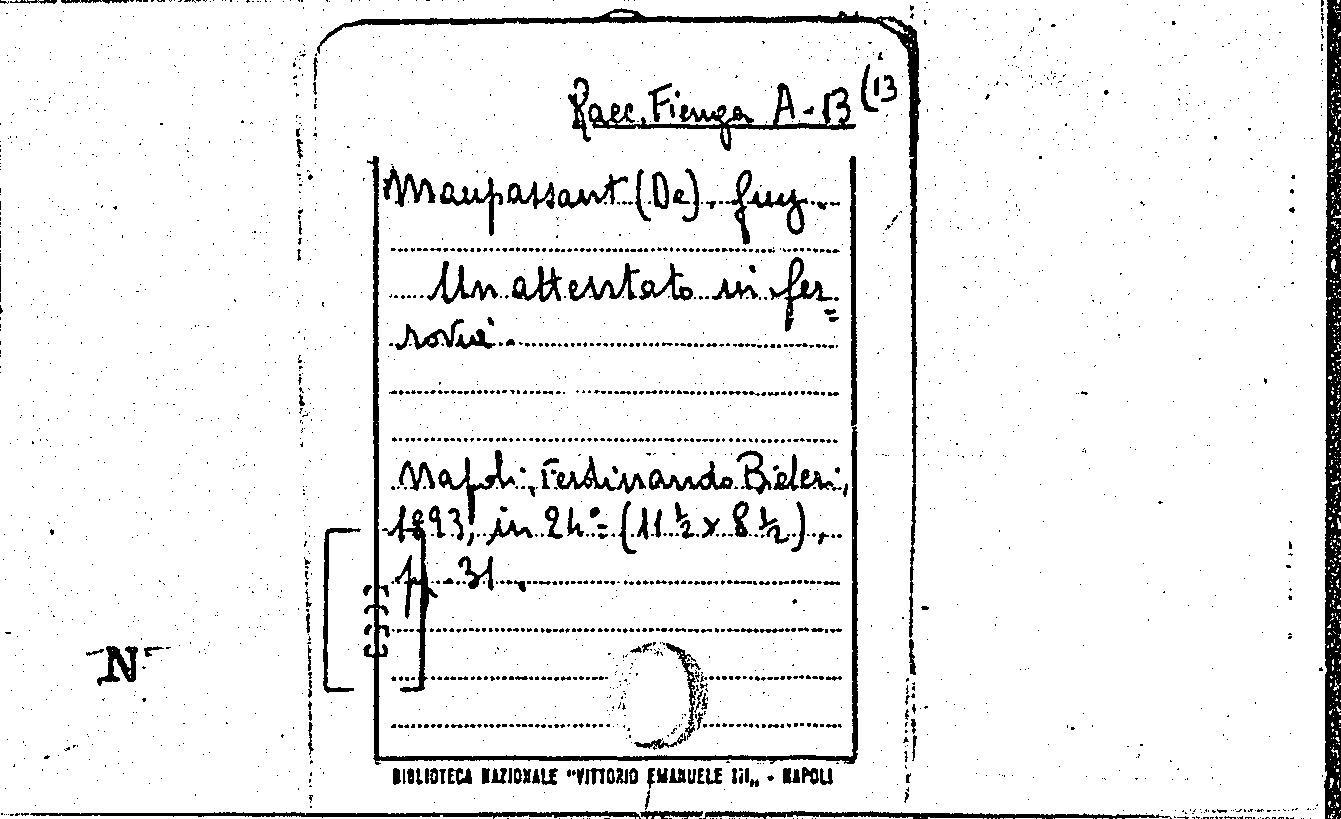 Racc. Fienga A-B (13
Maupassant (De). Guy.
Un attentato in fer=
rovia.
Napoli, Ferdinando Bideri,
1893, in 24°= (11 ½ x 8 ½),
pp. 31.
N
BIBLIOTECA NAZIONALE "VITTORIO EMANUELE III„ - NAPOLI